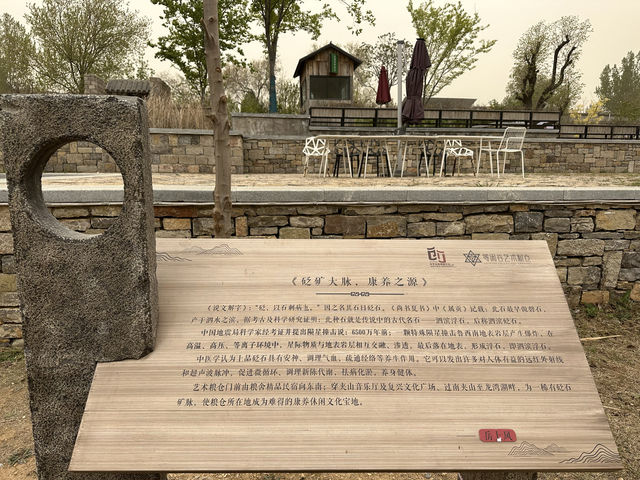 等闲谷艺术粮仓
《砭矿大脉，康养之源》
《说文解字》：“砭，以石刺病也。”因之各其石曰砭石。《尚书夏书》中《禹贡》记载：此石最早做磬石，
产于泗水之滨。据考古及科学研究证明：此种石就是传说中的古代名石——泗滨浮石，后称泗滨砭石。
中国地震局科学家经考证并提出陨星撞击说：6500万年前，一颗特殊陨星撞击鲁西南地表岩层产生爆炸，在
高温、高压、等离子环境中，星际物质与地表岩层相互交融、渗透，最后落在地表，形成浮石，即泗滨浮石。
中医学认为上品砭石具有安神、调理气血、疏通经络等养生作用。它可以发出许多对人体有益的远红外射线
和超声波脉冲，促进微循环、调理新陈代谢、祛病化淤、养身健体。
艺术粮仓门前由粮舍精品民宿向东南；穿夹山音乐厅及复兴文化广场、过南夹山至龙湾湖畔，为一稀有砭石
矿脉，使粮仓所在地成为难得的康养休闲文化宝地。